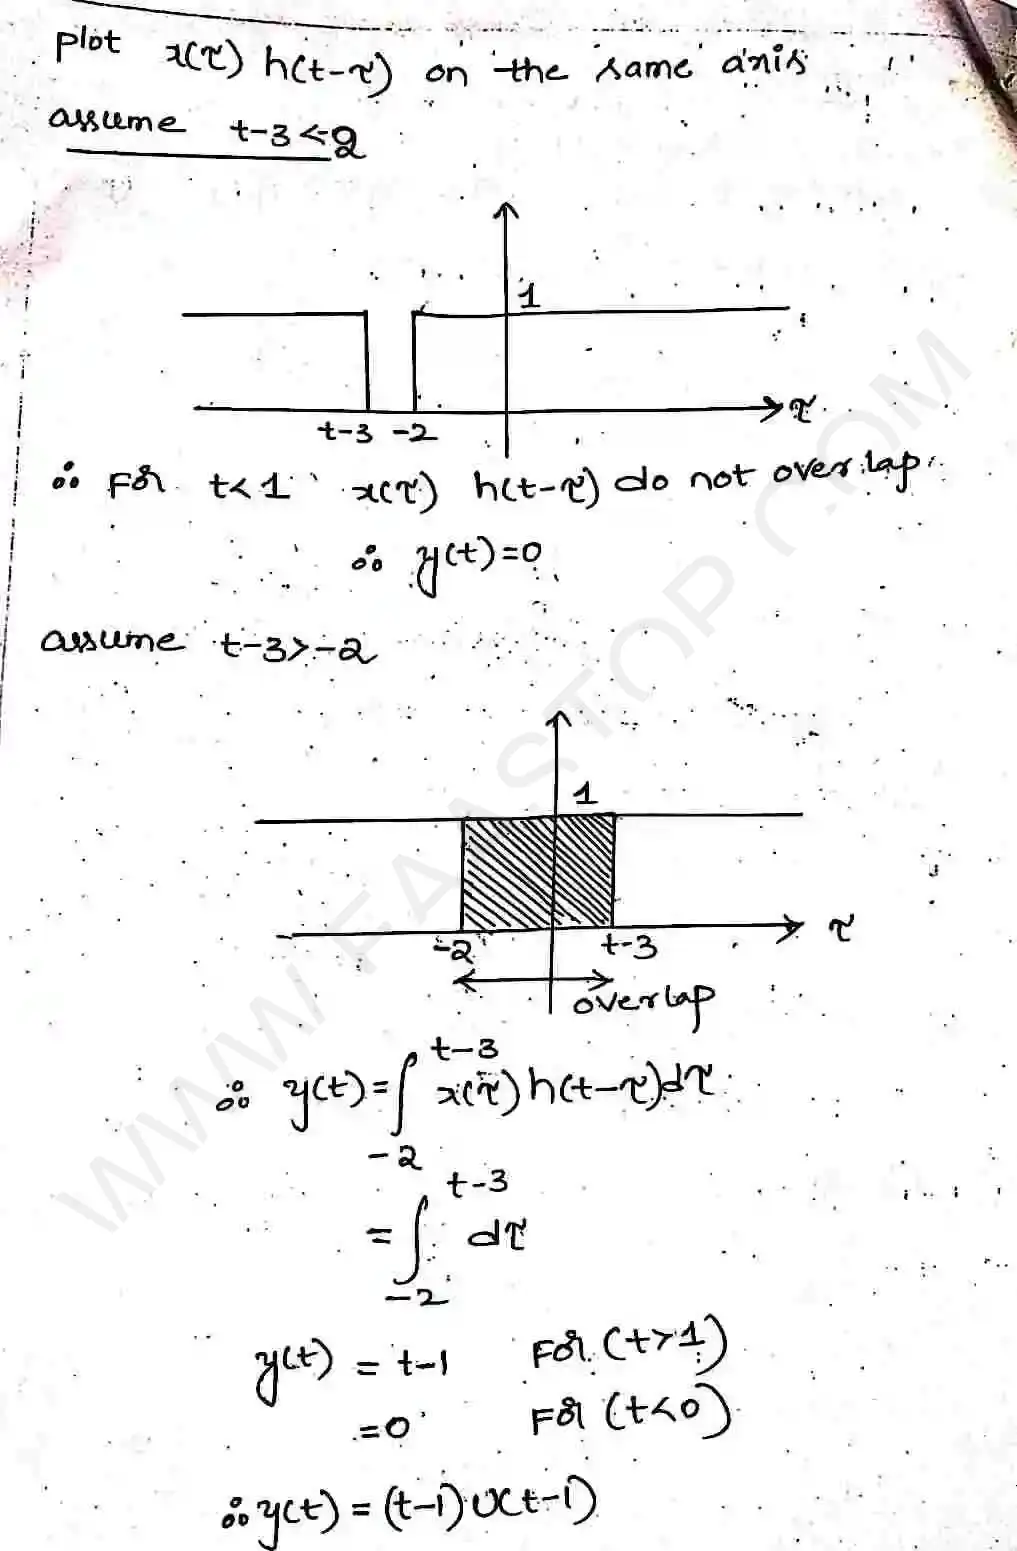 plot x(τ) h(t-τ) on the same axis
assume t-3<-2
1
τ
t-3 -2
∴ For t<1 x(τ) h(t-τ) do not overlap
∴ y(t)=0
assume t-3>-2
1
τ
-2 t-3
overlap
∴ y(t)=∫_{-2}^{t-3} x(τ)h(t-τ)dτ
=∫_{-2}^{t-3} dτ
y(t) = t-1 For (t>1)
=0 For (t<0)
∴ y(t) = (t-1) u(t-1)
WWW.FAASTOP.COM